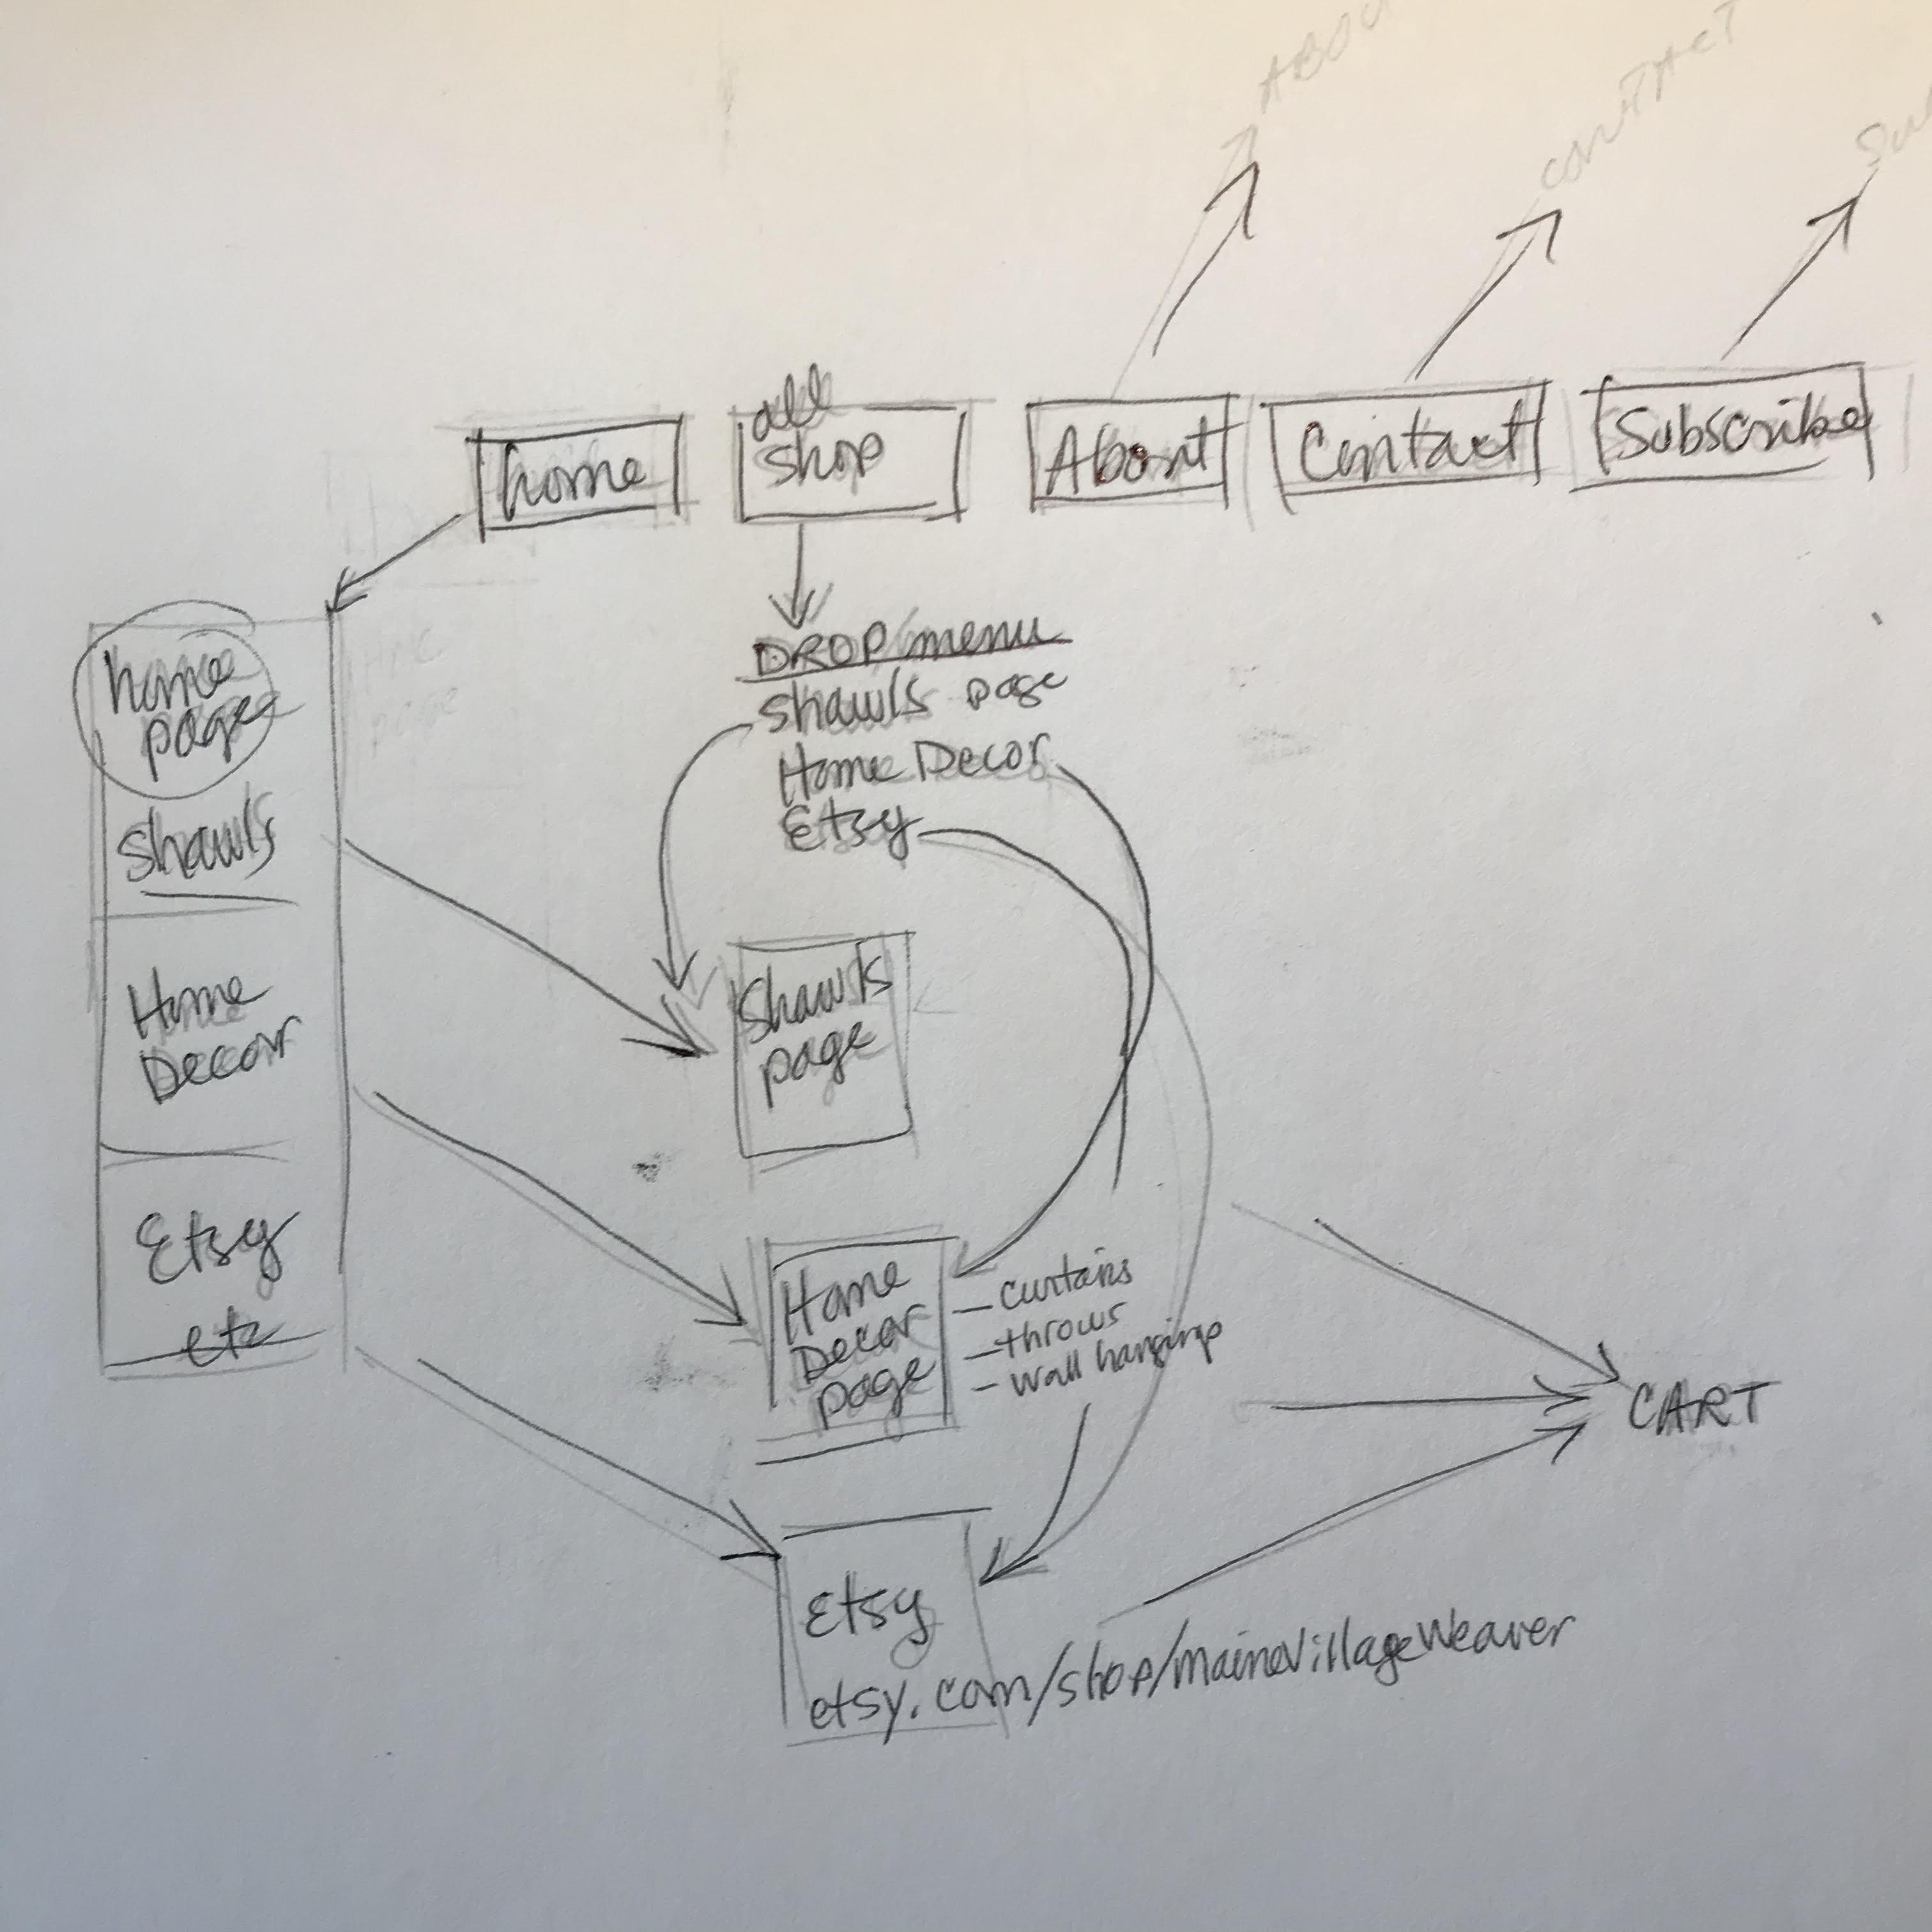 ABOU
CONTACT
Su
home
all
shop
About
Contact
Subscribe
home
page
shawls
Home
Decor
Etsy
etc
DROP menu
shawls page
Home Decor
Etsy
shawls
page
Home
Decor
page
- curtains
- throws
- wall hangings
CART
Etsy
etsy.com/shop/maineVillageWeaver